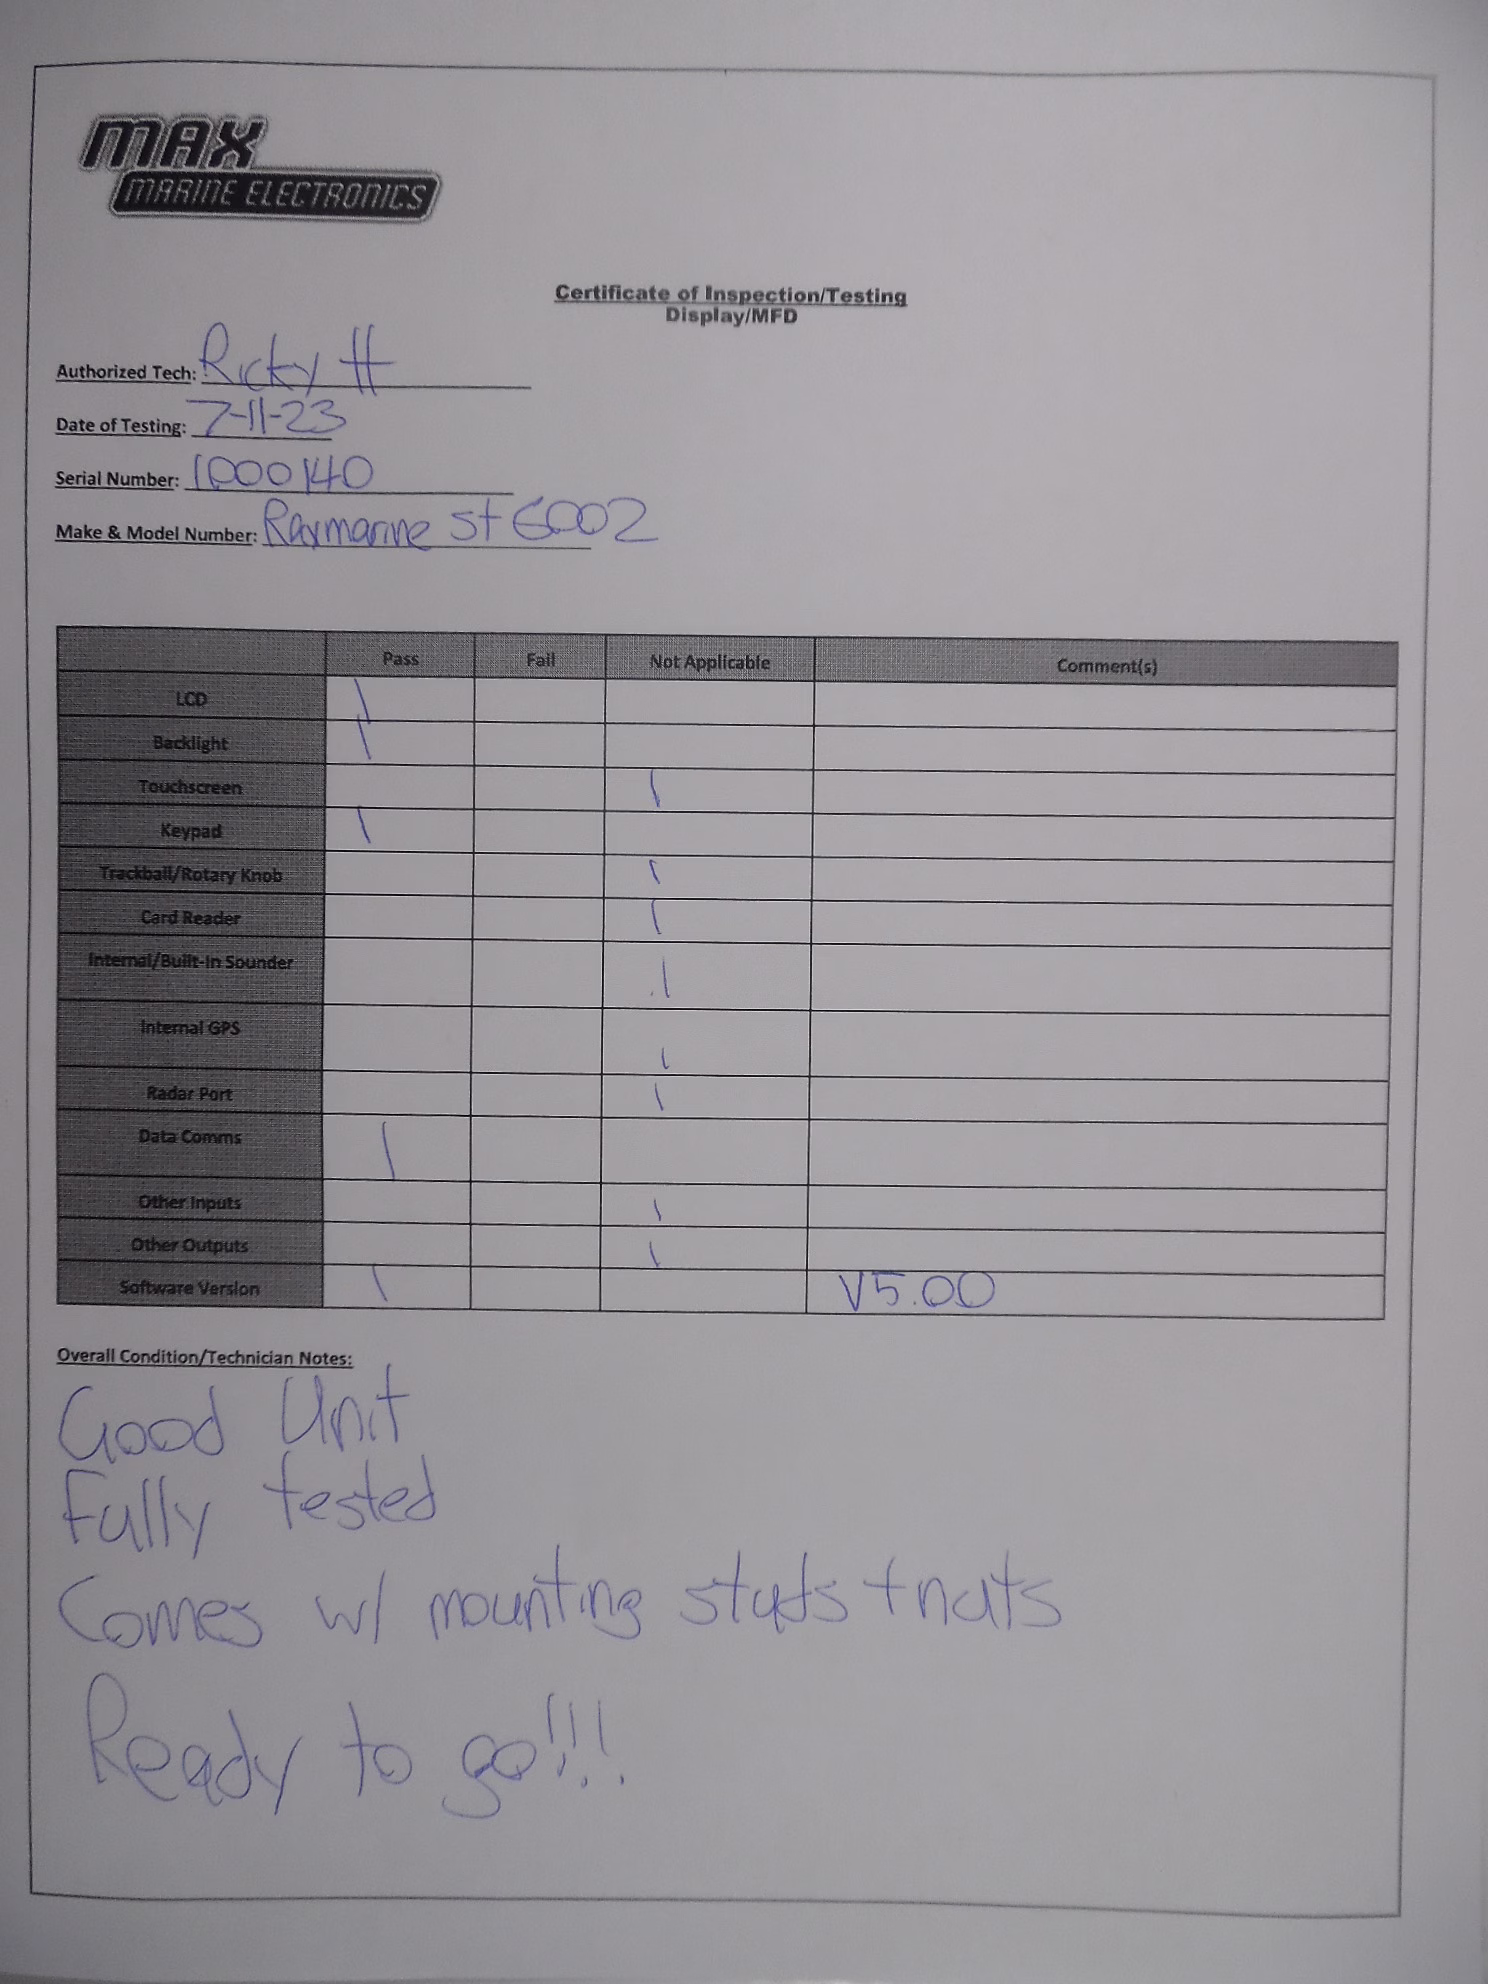 MAX
MARINE ELECTRONICS
Certificate of Inspection/Testing
Display/MFD
Authorized Tech: Ricky H
Date of Testing: 7-11-23
Serial Number: 1000140
Make & Model Number: Raymarine St 6002
Pass Fail Not Applicable Comment(s)
LCD \
Backlight \
Touchscreen \
Keypad \
Trackball/Rotary Knob \
Card Reader \
Internal/Built-In Sounder \
Internal GPS \
Radar Port \
Data Comms \
Other Inputs \
Other Outputs \
Software Version \ V5.00
Overall Condition/Technician Notes:
Good Unit
Fully tested
Comes w/ mounting studs + nuts
Ready to go!!!